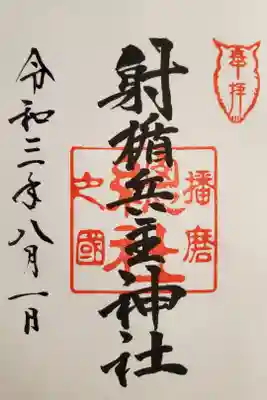 奉拝
射楯兵主神社
播磨
之國
総社
令和三年八月一日